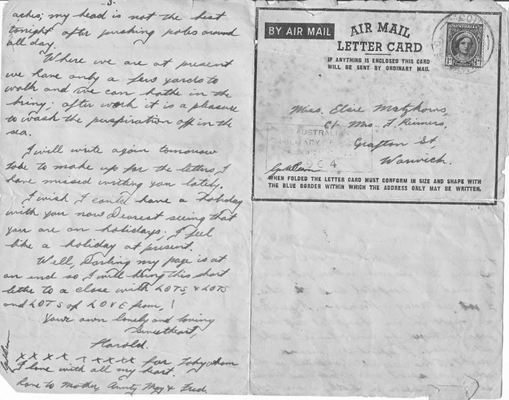 3.
aches; my head is not the best
tonight after pushing poles around
all day.
Where we are at present
we have only a few yards to
walk and we can bathe in the
briny; after work it is a pleasure
to wash the perspiration off in the
sea.
I will write again tomorrow
to make up for the letters I
have missed writing you lately.
I wish I could have a holiday
with you now Dearest seeing that
you are on holidays; I feel
like a holiday at present.
Well, Darling my page is at
an end so I will bring this short
letter to a close with LOTS & LOTS
and LOTS of LOVE from,
Your own lonely and loving
Sweetheart,
Harold.
for
I love with all my heart.
Love to Mother, Aunty May & Fred.
BY AIR MAIL
AIR MAIL
LETTER CARD
IF ANYTHING IS ENCLOSED THIS CARD
WILL BE SENT BY ORDINARY MAIL.
AUSTRALIA
Miss. Elsie
C/- Mrs.
Grafton St,
Warwick.
AUSTRALIAN
964
WHEN FOLDED THE LETTER CARD MUST CONFORM IN SIZE AND SHAPE WITH
THE BLUE BORDER WITHIN WHICH THE ADDRESS ONLY MAY BE WRITTEN.